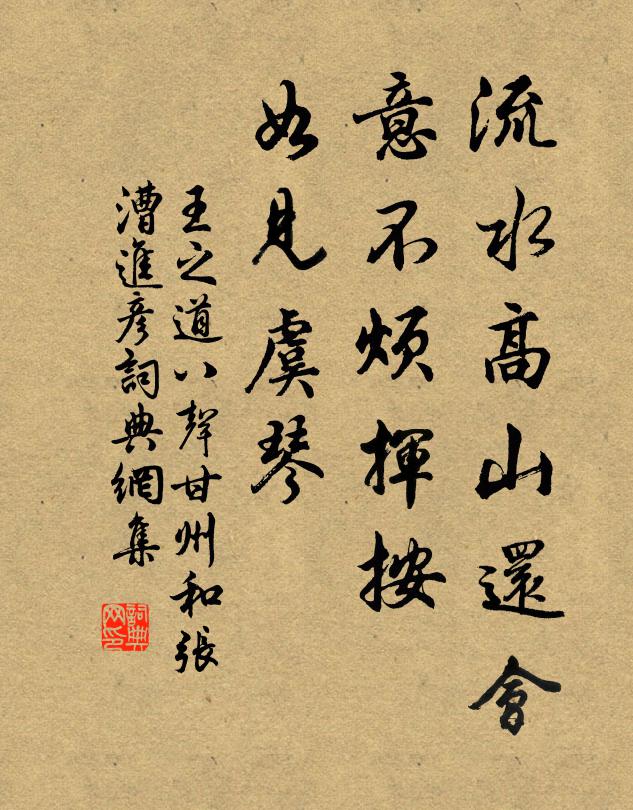 流水高山還會
意不煩揮按
如見虞琴
王之道八聲甘州和張
漕進彦詞典網集
詞典網印